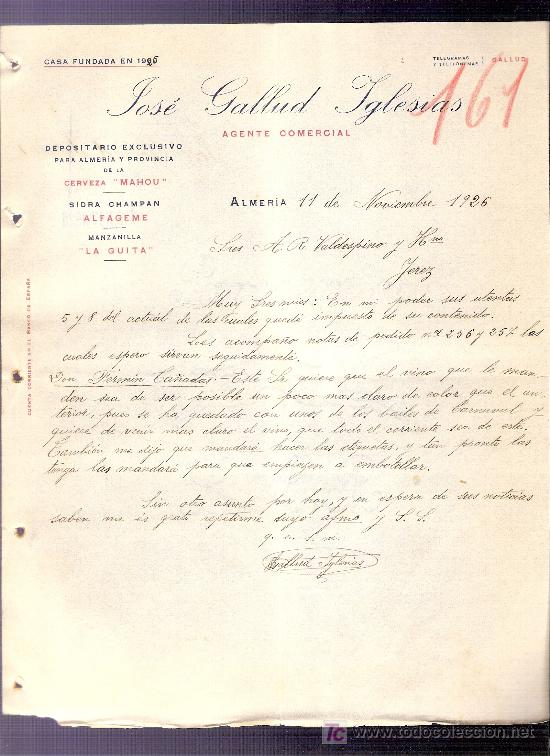 CASA FUNDADA EN 1905
TELEGRAMAS Y TELEFONEMAS GALLUD
161
José Gallud Iglesias
AGENTE COMERCIAL
DEPOSITARIO EXCLUSIVO
PARA ALMERÍA Y PROVINCIA
DE LA
CERVEZA "MAHOU"
SIDRA CHAMPAN
ALFAGEME
MANZANILLA
"LA GUITA"
CUENTA CORRIENTE EN EL BANCO DE ESPAÑA
ALMERÍA 11 de Noviembre 1926
Sres A. R. Valdespino y Hno
Jerez
Muy Sres mios: En mi poder sus atentas
5 y 8 del actual de las cuales quedé impuesto de su contenido.
Les acompaño notas de pedido nº 256 y 257 las
cuales espero sirvan seguidamente.
Don Fermin Cañadas - Este Sr quiere que el vino que le man-
den sea de ser posible un poco mas claro de color que el an-
terior, pues se ha quedado con unos de los bailes de Carnaval y
quiere de venir mas claro el vino, que todo el corriente sea de este.
Tambien me dijo que mandará hacer las etiquetas, y tan pronto las
tenga las mandará para que empiezen a embotellar.
Sin otro asunto por hoy, y en espera de sus noticias
saben me es grato repetirme suyo afmo y S. S.
q. e. s. m.
Gallud Iglesias
todocoleccion